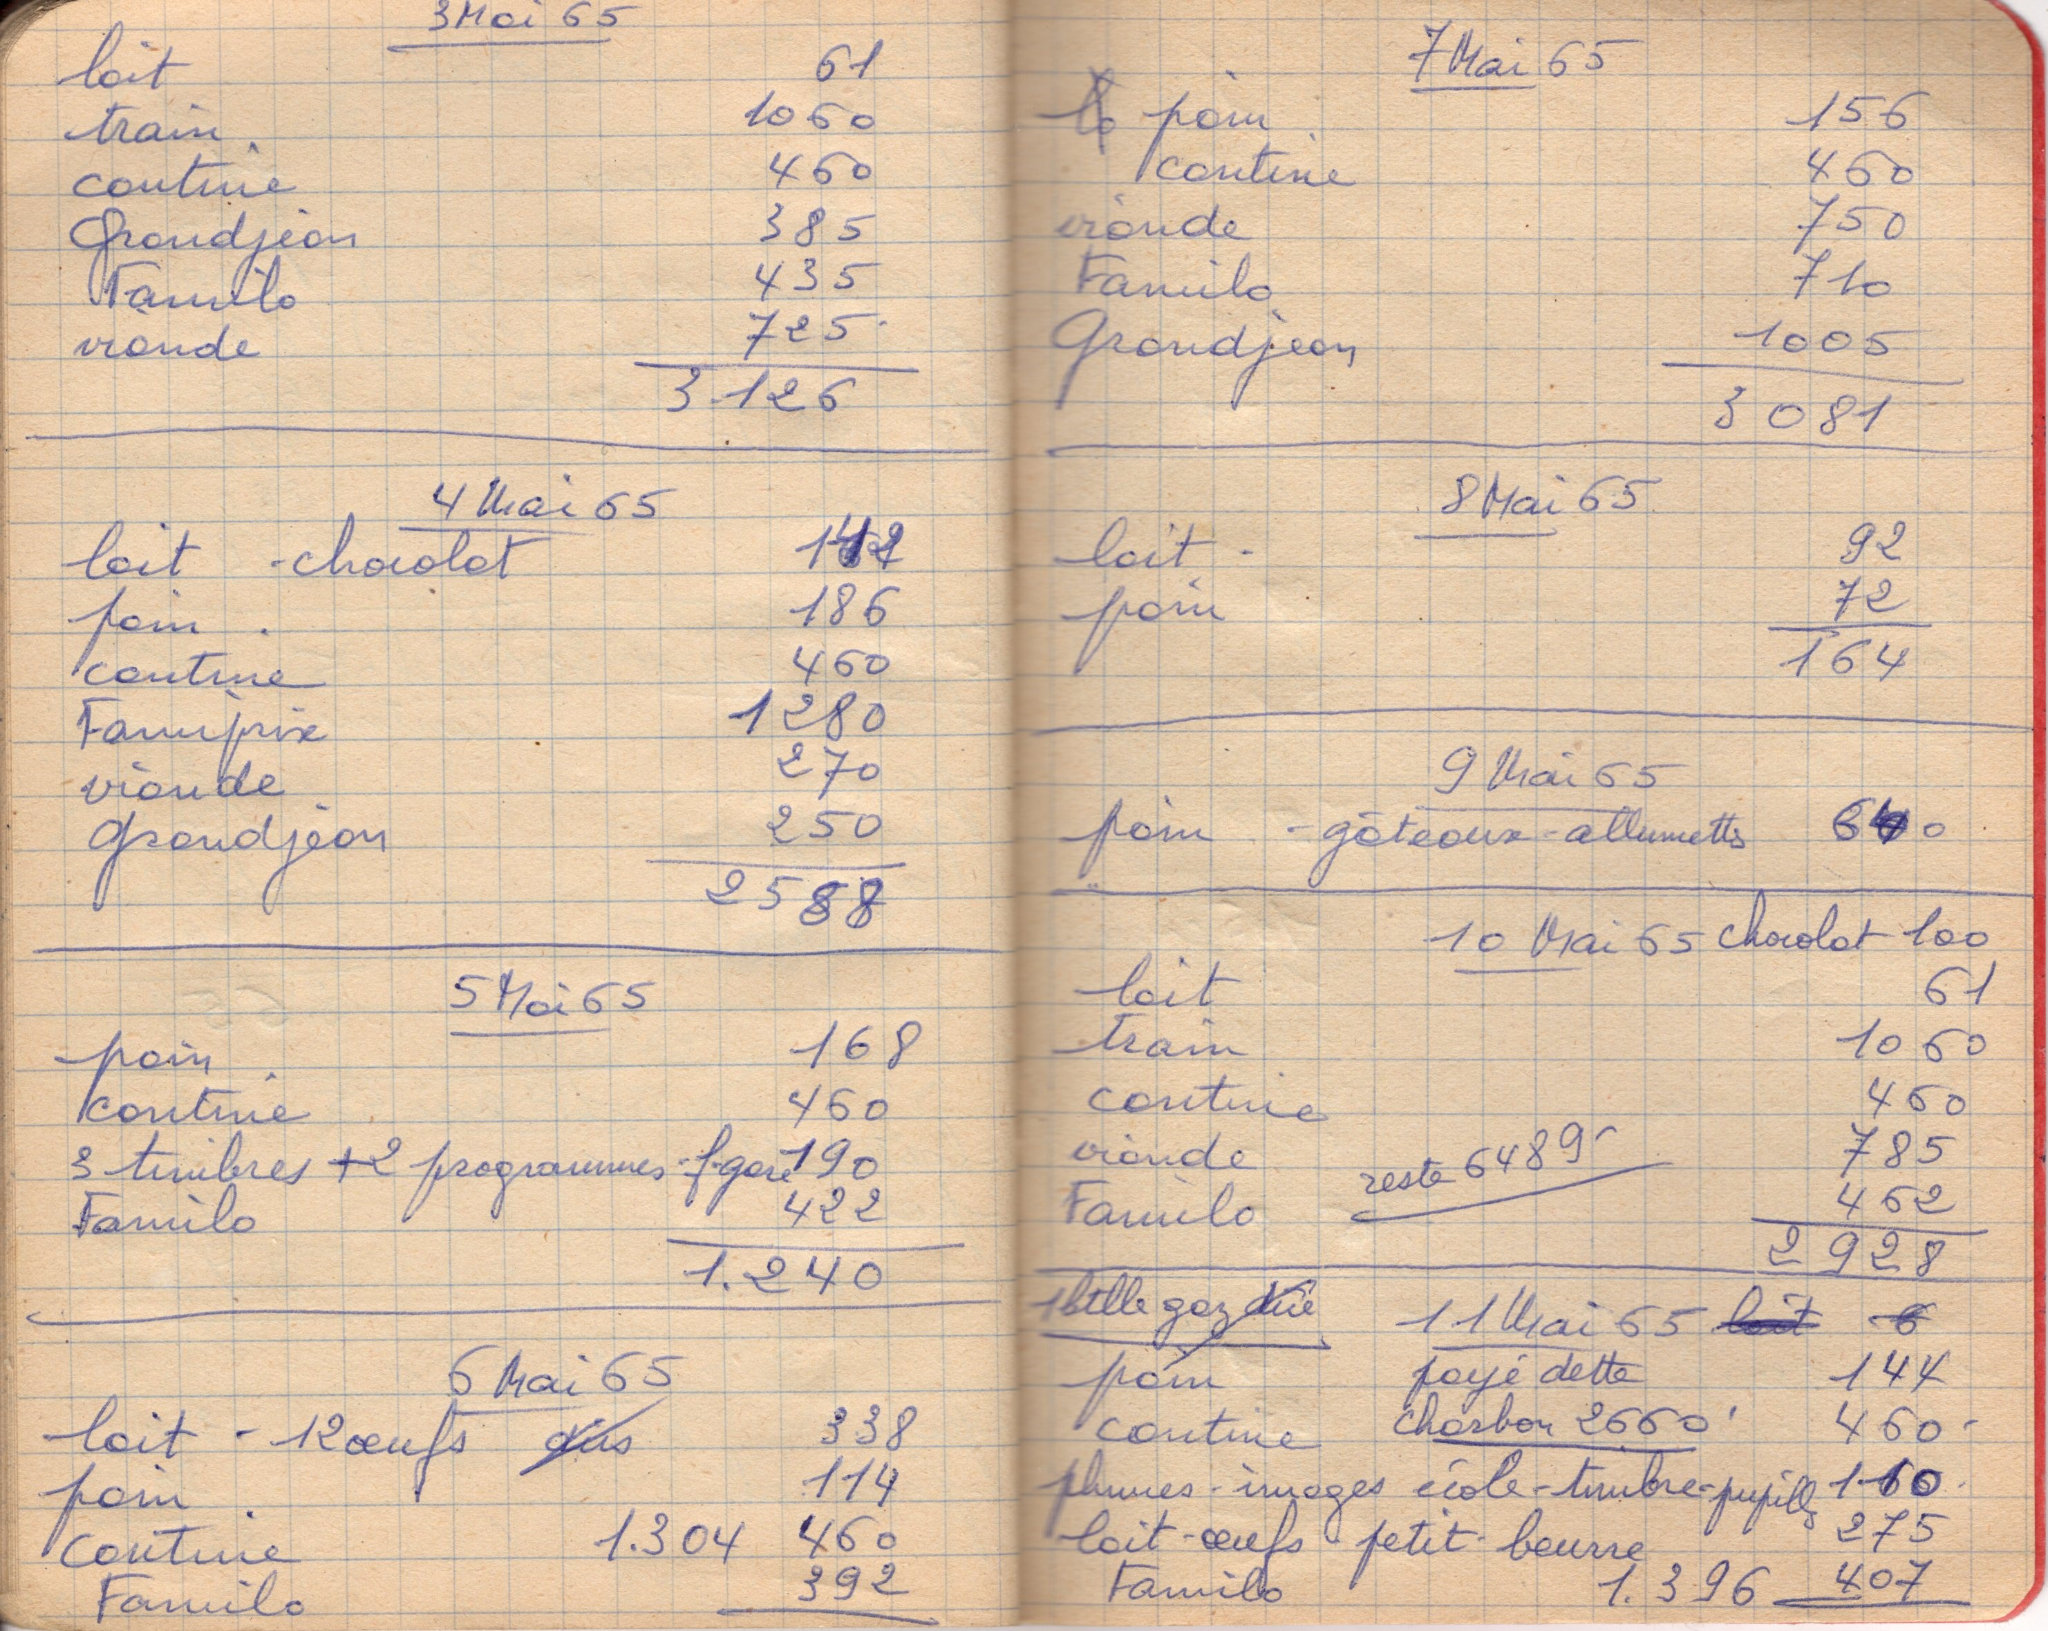 3 Mai 65
lait 61
train 1060
cantine 460
Grandjean 385
Familo 435
viande 725
3.126
4 Mai 65
lait - chocolat 142
pain 186
cantine 460
Familprix 1280
viande 270
Grandjean 250
2588
5 Mai 65
pain 168
cantine 460
3 timbres + 2 programmes - f. gare 190
Familo 422
1.240
6 Mai 65
lait - 12 œufs dûs 338
pain 114
cantine 1.304 460
Familo 392
7 Mai 65
pain 156
cantine 460
viande 750
Familo 710
Grandjean 1005
3081
8 Mai 65
lait - 92
pain 72
164
9 Mai 65
pain - gâteaux - allumettes 640
10 Mai 65 chocolat 100
lait 61
train 1060
cantine 460
viande 785
reste 6489
Familo 462
2928
1 btlle gaz dûe 11 Mai 65 lait 6
pain payé dette 144
cantine charbon 2660 460
plumes - images école - timbre - pupilles 110
lait - œufs petit-beurre 275
Familo 1.396 407